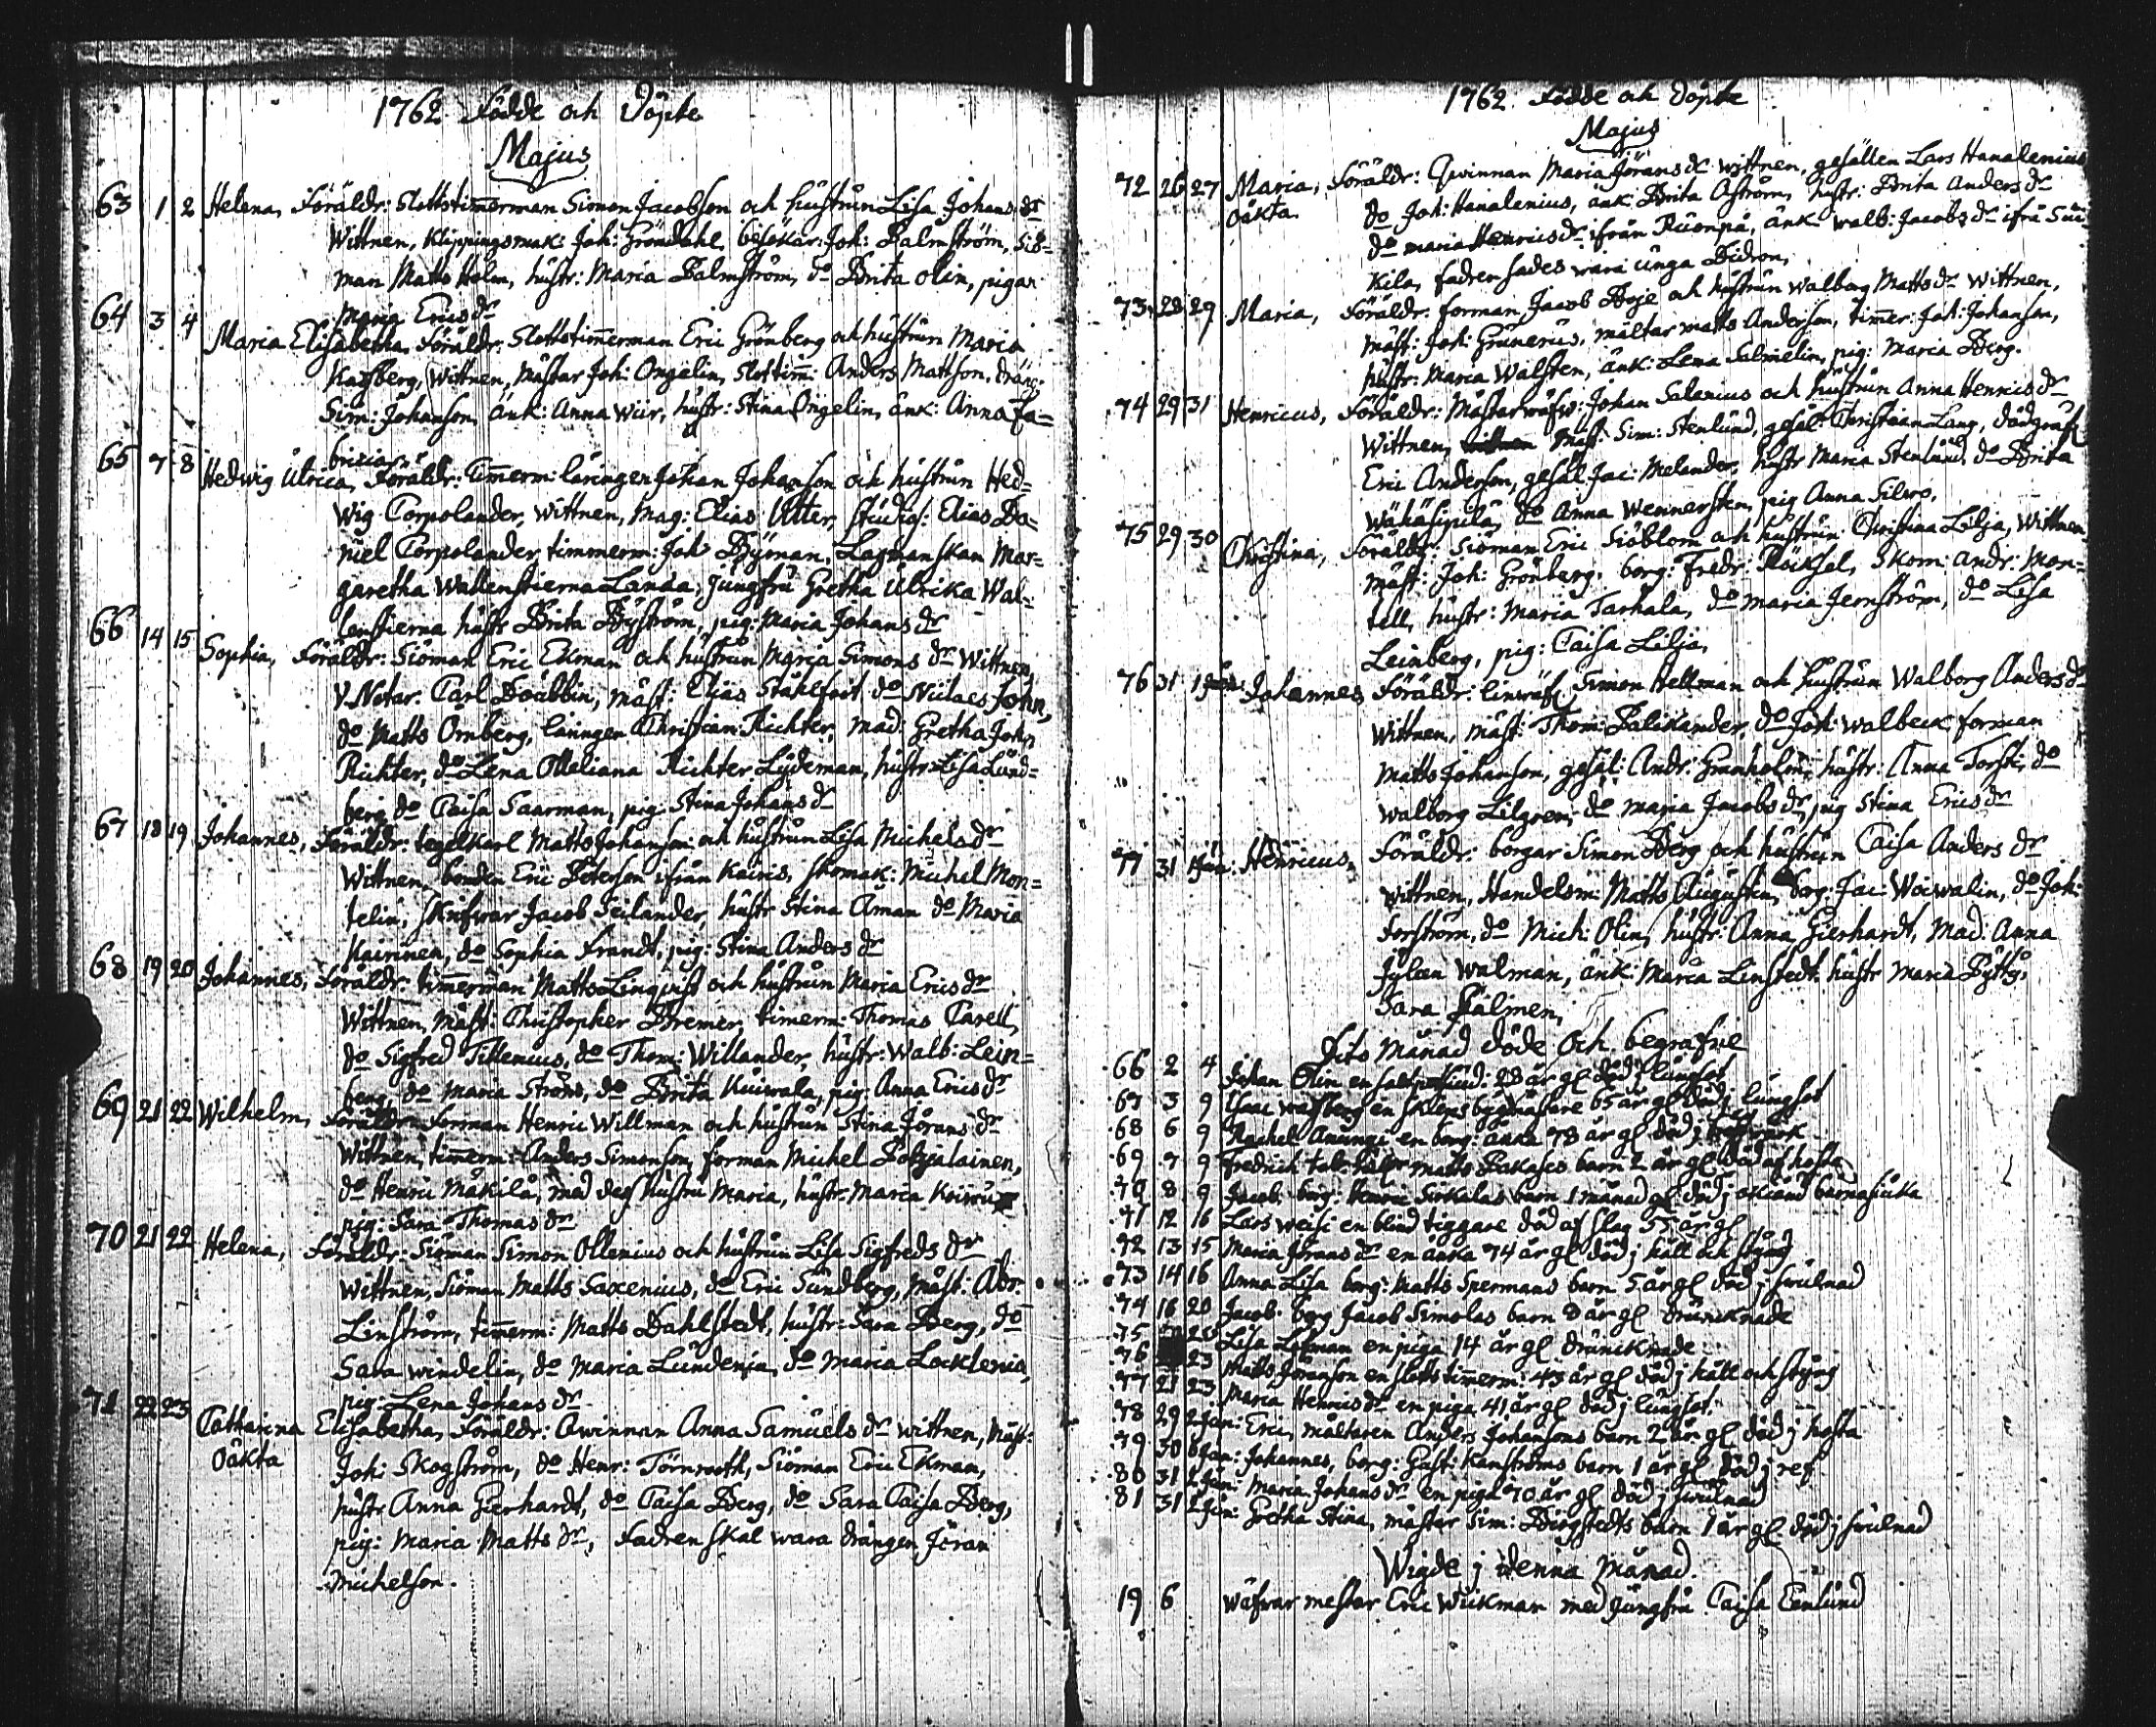 1762 Födde och Döpte
Majus
63 1 2 Helena, Föräldr: Slottstimerman Simon Jacobson och hustrun Lisa Johans dr
Wittnen, Klippingsmak: Joh: Gröndahl, besökar: Joh: Palmström, Siö=
man Matts Holm, hustr: Maria Palmström, do Brita Olin, pigan
Maria Erics dr
64 3 4 Maria Elisabetha, Föräldr: Slottstimerman Eric Grönberg och hustrun Maria
Kagberg, Wittnen, Mästar Joh: Ongelin, Slottstim: Anders Mattson, dräng:
Sim: Johanson, änk: Anna Wiir, hustr: Stina Ongelin, änk: Anna Fa=
bricius
65 7 8 Hedwig Ulrica, Föräldr: Timerm: läringen Johan Johanson och hustrun Hed=
wig Corpolander, wittnen, Mag: Elias Utter, Studios: Elias Da=
niel Corpolander, timmerm: Joh: Byman, Lagmanskan Mar=
garetha Wallenstierna Landa, jungfru Gretha Ulrika Wal=
lenstierna hustr Brita Byström, pig: Maria Johans dr
66 14 15 Sophia, Föräldr: Siöman Eric Ekman och hustrun Maria Simons dr Wittnen,
V. Notar. Carl Doubbin, mäst: Elias Stählfoot do Niclaes John,
do Matts Örnberg, läringen Christian Richter, Mad: Gretha John
Richter, do Lena Otteliana Richter Lydeman, hustr: Lisa Lund=
berg do Caisa Saarman, pig: Stina Johans dr
67 18 19 Johannes, Föräldr: tegelkarl Matts Johanson och hustrun Lisa Michels dr
Wittnen, bonden Eric Peterson ifrån Kairis, skomak: Michel Mon=
telin, skrifwar Jacob Teilander, hustr Stina Åman do Maria
Kairinen, do Sophia Frandt, pig: Stina Anders dr
68 19 20 Johannes, Föräldr: timerman Matts Linqvist och hustrun Maria Erics dr
Wittnen, Mäst: Christopher Bremer, timerm: Thomas Carell,
do Sigfred Tillenius, do Thom: Willander, hustr: Walb: Lein=
berg, do Maria Ströms, do Brita Kuiwala, pig: Anna Erics dr
69 21 22 Wilhelm, Föräldr: Forman Henric Willman och hustrun Stina Jörans dr
Wittnen, timerm: Anders Simonson, forman Michel Pohjalainen,
do Henric Mäkilä, med dess hustru Maria, hustr: Maria
pig: Sara Thomas dr
70 21 22 Helena, Föräldr: Siöman Simon Ollenius och hustrun Lisa Sigfreds dr
Wittnen, Siöman Matts Saxenius, do Eric Sundberg, mäst: Abr.
Linström, timerm: Matts Dahlstedt, hustr: Sara Berg, do
Sara Windelin, do Maria Lundenia, do Maria Locklenia,
pig: Lena Johans dr
71 22 23 Catharina Elisabetha, Föräldr: Qwinnan Anna Samuels dr wittnen, Mäst:
Oäkta Joh: Skogström, do Henr: Törnroth, Siöman Eric Ekman,
hustr Anna Gierhardt, do Caisa Berg, do Sara Caisa Berg,
pig: Maria Matts dr, Fadren skal wara drängen Jöran
Michelson.
1762. Födde och Döpte
Majus
72 26 27 Maria, Föräldr: Qwinnan Maria Jörans dr wittnen, gesällen Lars Hanalenius
oäkta. do Joh: Hanalenius, änk: Brita Åström, hustr: Brita Anders dr
do Maria Henrics dr ifrån Ruonpä, änk: walb: Jacobs dr ifrå Sui
kila, fadren sades wara unga Bidron,
73 28 29 Maria, Föräldr. forman Jacob Boje och hustrun Walborg Matts dr Wittnen,
Mäst: Joh: Grünerus, mältar matts Anderson, timer: Joh: Johanson,
hustr: Maria Walsten, änk: Lena Salmelin, pig: Maria Berg.
74 29 31 Henricus, Föräldr: Johan Salenius och hustrun Anna Henrics dr
Wittnen, Mäst: Sim: Stenlund, gesäl: Christian Lang, dödgräfw
Eric Anderson, gesäl Jac: Melander, hustr Maria Stenlund, do Brita
Wähäsipilä, do Anna Wennersten, pig Anna Silwo.
75 29 30 Christina, Föräldr: Siöman Eric Siöblom och hustrun Christina Lilja, Wittnen
mäst: Joh: Grönberg, borg: Fredr: Röiksel, Skom: andr: Mon=
tell, hustr: Maria Tarhala, do Maria Jernström, do Lisa
Leinberg, pig: Caisa Lilja,
76 31 1 Jun: Johannes Föräldr: linwäfw: Simon Hellman och hustrun Walborg Anders dr
Wittnen, mäst: Thom: Palikander, do Joh: Walbeck, forman
Matts Johanson, gesäl: Andr: Granholm, hustr: Anna Torst:, do
Walborg Lilgren, do Maria Jacobs dr, pig Stina Erics dr
77 31 1 Jun: Henricus, Föräldr: borgar Simon Berg och hustrun Caisa Anders dr
wittnen, Handelsm: Matts Augustin, borg: Jac: Woiwalin, do Joh:
Forström, do Mich: Olin, hustr: Anna Gierhardt, Mad: Anna
Walman, änk: Maria Linstedt, hustr Maria
Sara Palmen,
Dito Månad döde och begrafne
66 2 4 Johan Olin en 28 år gl död j lungsot
67 3 9 en skieps byggmästare 65 år gl död j lungsot
68 6 9 Rachel en borg: änka 78 år gl död j
69 7 9 Fredrich Matts Pakases barn 2 år gl död af hosta
70 8 9 Jacob borg: Henric Sirkalas barn 1 månad gl död j okiänd barnasiuka
71 12 16 Lars weisi en blind tiggare död af slag 55 år gl
72 13 15 Maria Jörans dr en änka 74 år gl död j håll och styng
73 14 16 Anna Lisa borg: Matts Spermans barn 5 år gl död j swulnad
74 16 20 Jacob borg Jacob Simolas barn 8 år gl drunknade
75 20 Lisa Lofman en piga 14 år gl drunicknade
76 23 Matts Jöranson en slottstimerm: 43 år gl död j håll och styng
77 21 23 Maria Henrics dr en piga 41 år gl död j lungsot.
78 29 2 Jun: Eric, mältaren Anders Johansons barn 2 år gl död j hosta
79 30 6 Jun: Johannes, borg: Gust: Kanströms barn 1 år gl död j ref
80 31 2 Jun: Maria Johans dr en piga 70 år gl död j swulnad
81 31 2 Jun: Gretha Stina, mästar Sim: Bergstedts barn 1 år gl död j swulnad
Wigde j denna månad.
19 6 Wäfwar mester Eric Wickman med Jungfru Caisa Eenlund